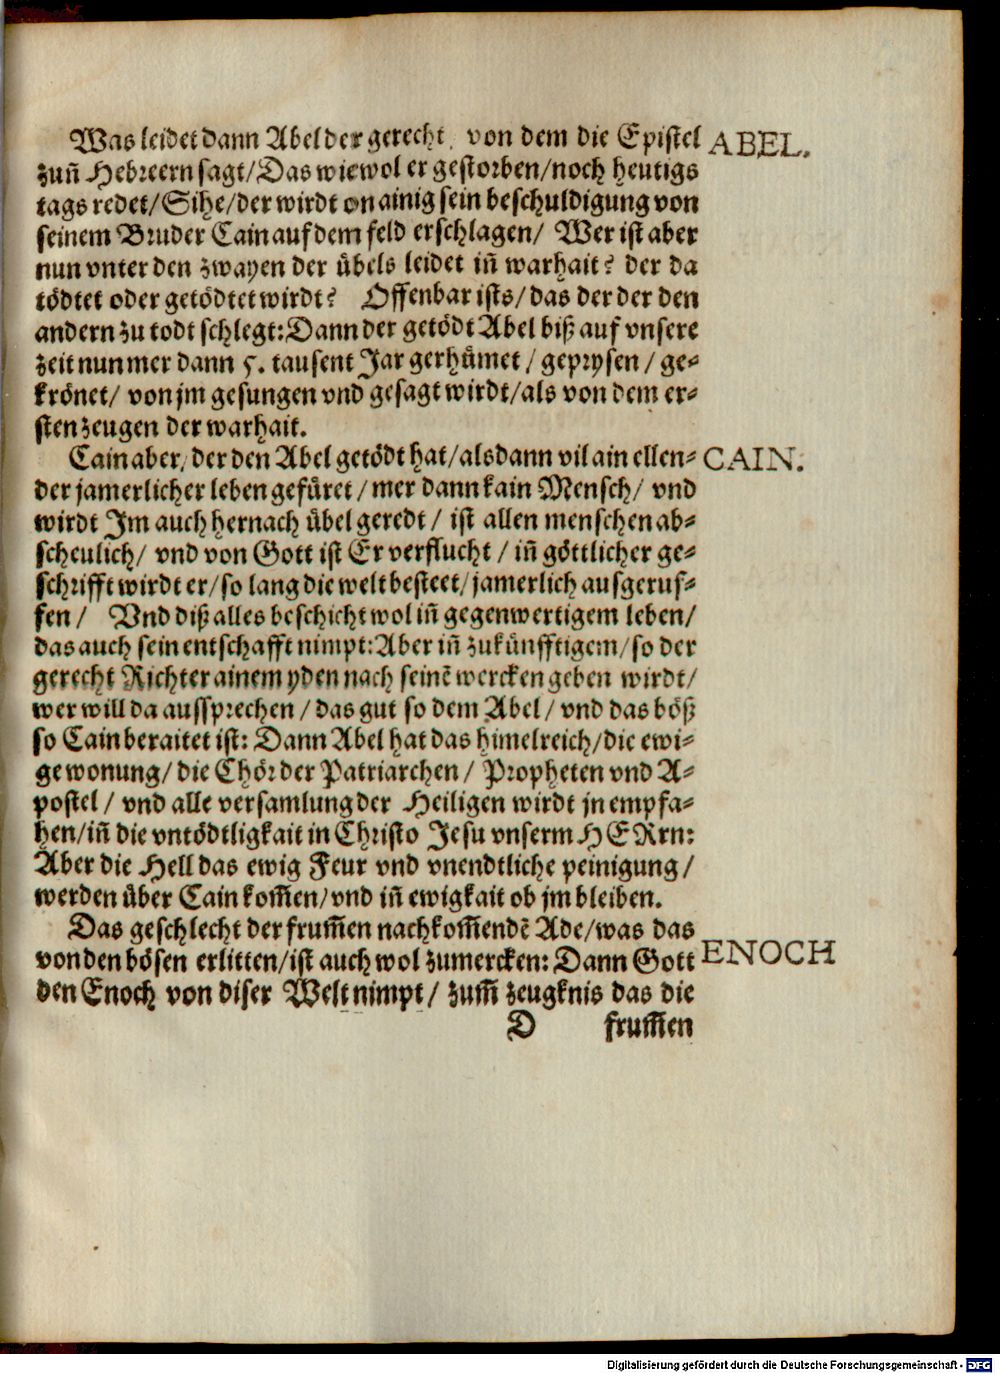 Was leidet dann Abel der gerecht, von dem die Epistel
ABEL.
zuñ Hebreern sagt/Das wiewol er gestorben/noch heutigs
tags redet/Sihe/der wirdt on ainig sein beschuldigung von
seinem Bruder Cain auf dem feld erschlagen/ Wer ist aber
nun vnter den zwayen der übels leidet iñ warhait? der da
tödtet oder getödtet wirdt? Offenbar ists/das der der den
andern zu todt schlegt: Dann der getödt Abel biß auf vnsere
zeit nun mer dann 5. tausent Jar gerhümet/geprysen/ge-
krönet/ von jm gesungen vnd gesagt wirdt/als von dem er-
sten zeugen der warhait.
Cain aber, der den Abel getödt hat/alsdann vil ain ellen-
CAIN.
der jamerlicher leben gefüret/mer dann kain Mensch/ vnd
wirdt Jm auch hernach übel geredt/ ist allen menschen ab-
scheulich/ vnd von Gott ist Er verflucht/iñ göttlicher ge-
schrifft wirdt er/so lang die welt besteet/jamerlich ausgeruf-
fen/ Vnd diß alles beschicht wol iñ gegenwertigem leben/
das auch sein entschafft nimpt: Aber iñ zukünfftigem/so der
gerecht Richter ainem yden nach seinē wercken geben wirdt/
wer will da aussprechen/das gut so dem Abel/ vnd das böß
so Cain beraitet ist: Dann Abel hat das himelreich/die ewi-
ge wonung/die Chör der Patriarchen/ Propheten vnd A-
postel/ vnd alle versamlung der Heiligen wirdt jn empfa-
hen/iñ die vntödtligkait in Christo Jesu vnserm HERrn:
Aber die Hell das ewig Feur vnd vnendtliche peinigung/
werden über Cain kom̃en/vnd iñ ewigkait ob jm bleiben.
Das geschlecht der frum̃en nachkom̃endē Ade/was das
von den bösen erlitten/ist auch wol zumercken: Dann Gott
ENOCH
den Enoch von diser Welt nimpt/ zum̃ zeugknis das die
D frum̃en
Digitalisierung gefördert durch die Deutsche Forschungsgemeinschaft - DFG